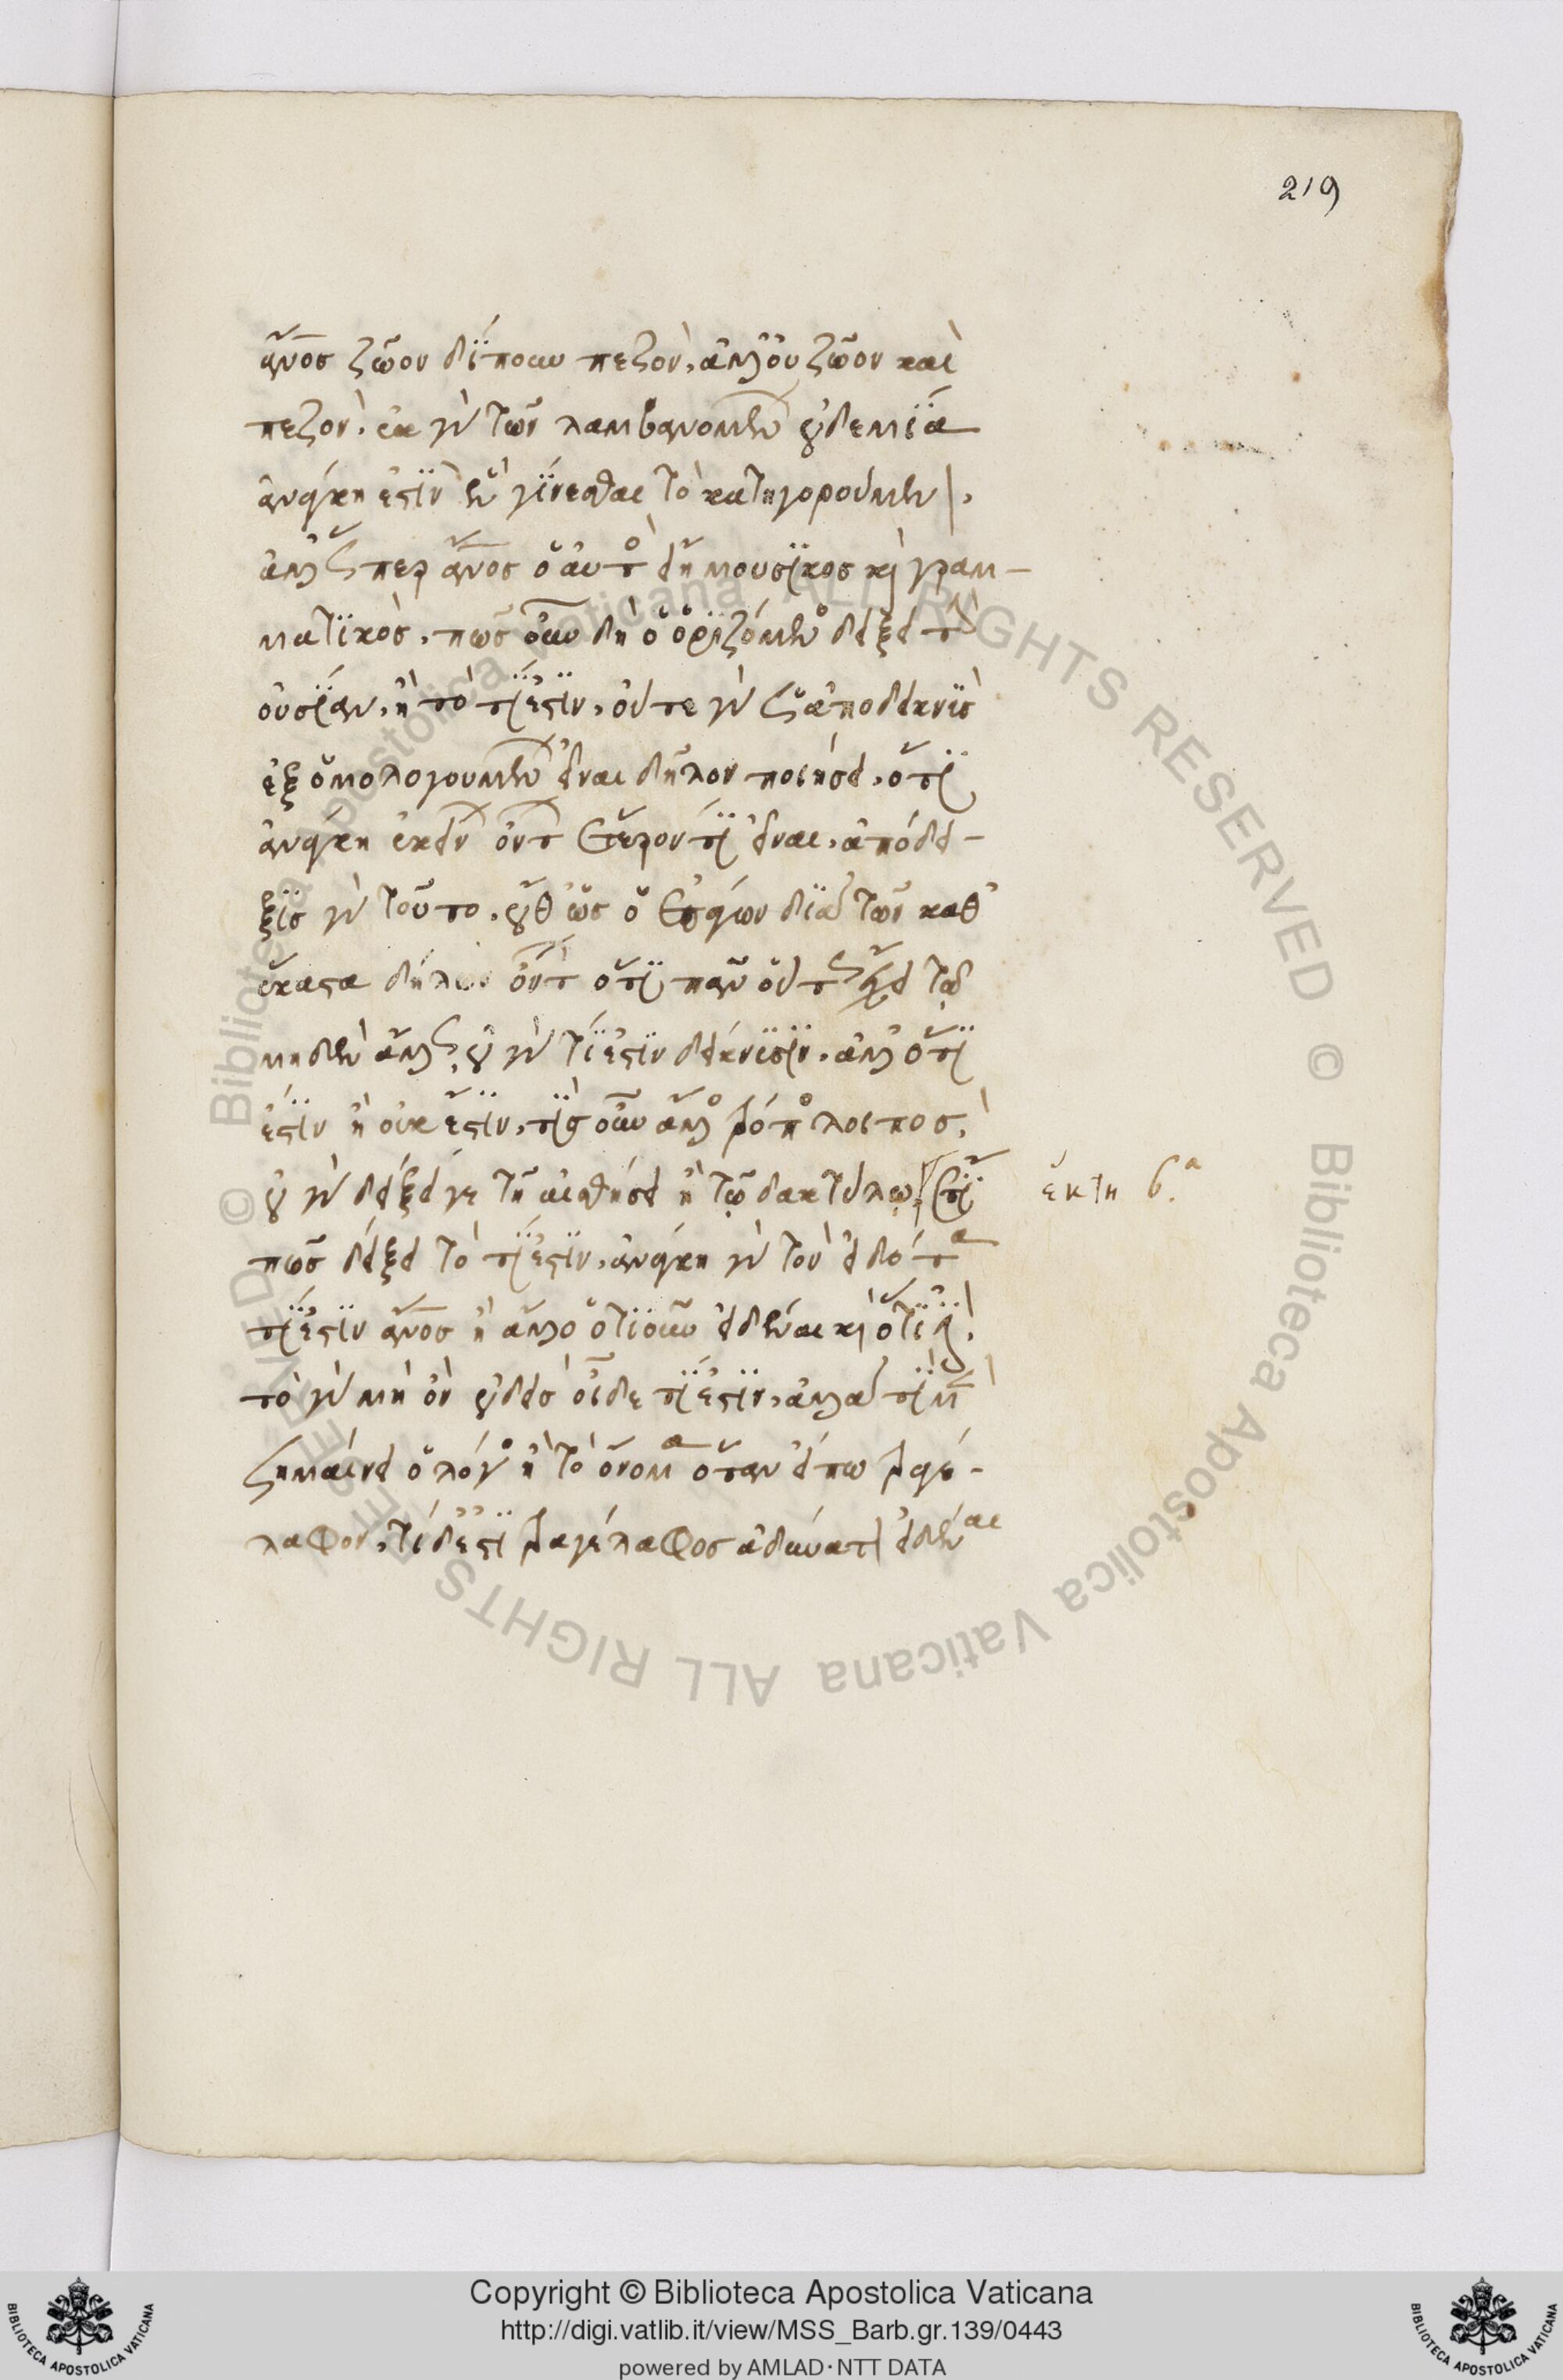 219
ἄνος ζῶον δίπουν πεζον, ἀλλ' οὐ ζῶον καὶ
πεζον. ἐκ γὰρ τῶν λαμβανομένων οὐδεμία
ἀνάγκη ἐστὶν ἓν γίνεσθαι τὸ κατηγορούμενον,
ἀλλ' ὥσπερ ἄνος ὁ αὐτὸς εἴη μουσικος καὶ γραμ-
ματικὸς, πῶς οὖν δὴ ὁ ὁριζόμενος δείξει τὴν
οὐσίαν, ἢ τὸ τί ἐστιν, οὔτε γὰρ ὡς ἀποδεικνὺς
ἐξ ὁμολογουμένων εἶναι δῆλον ποιήσει, ὅτι
ἀνάγκη ἐκείνων ὄντων ἕτερόν τι εἶναι, ἀπόδει-
ξις γὰρ τοῦτο, οὔθ' ὡς ὁ ἐπάγων διὰ τῶν καθ'
ἕκαστα δήλων ὄντων ὅτι πᾶν οὕτως ἔχει τῷ
μηδὲν ἄλλως, οὐ γὰρ τί ἐστιν δείκνισιν, ἀλλ' ὅτι
ἐστιν ἢ οὐκ ἔστιν, τίς οὖν ἄλλος τρόπος λοιπος,
οὐ γὰρ δείξει γε τῇ αἰσθήσει ἢ τῷ δακτύλῳ. ἔτι
πῶς δείξει τὸ τί ἐστιν, ἀνάγκη γὰρ τὸν εἰδότα
τί ἐστιν ἄνος ἢ ἄλλο ὁτιοῦν εἰδέναι καὶ ὅτι ἔστιν.
τὸ γὰρ μὴ ὂν οὐδεὶς οἶδε τί ἐστιν, ἀλλὰ τί μὲν
σημαίνει ὁ λόγος ἢ τὸ ὄνομα ὅταν εἴπω τραγέ-
λαφον, τί δ' ἐστὶ τραγέλαφος ἀδύνατον εἰδέναι
ἑκτη β.α
Copyright © Biblioteca Apostolica Vaticana
http://digi.vatlib.it/view/MSS_Barb.gr.139/0443
powered by AMLAD·NTT DATA
BIBLIOTECA APOSTOLICA VATICANA
BIBLIOTECA APOSTOLICA VATICANA
© Biblioteca Apostolica Vaticana ALL RIGHTS RESERVED © Biblioteca Apostolica Vaticana ALL RIGHTS RESERVED